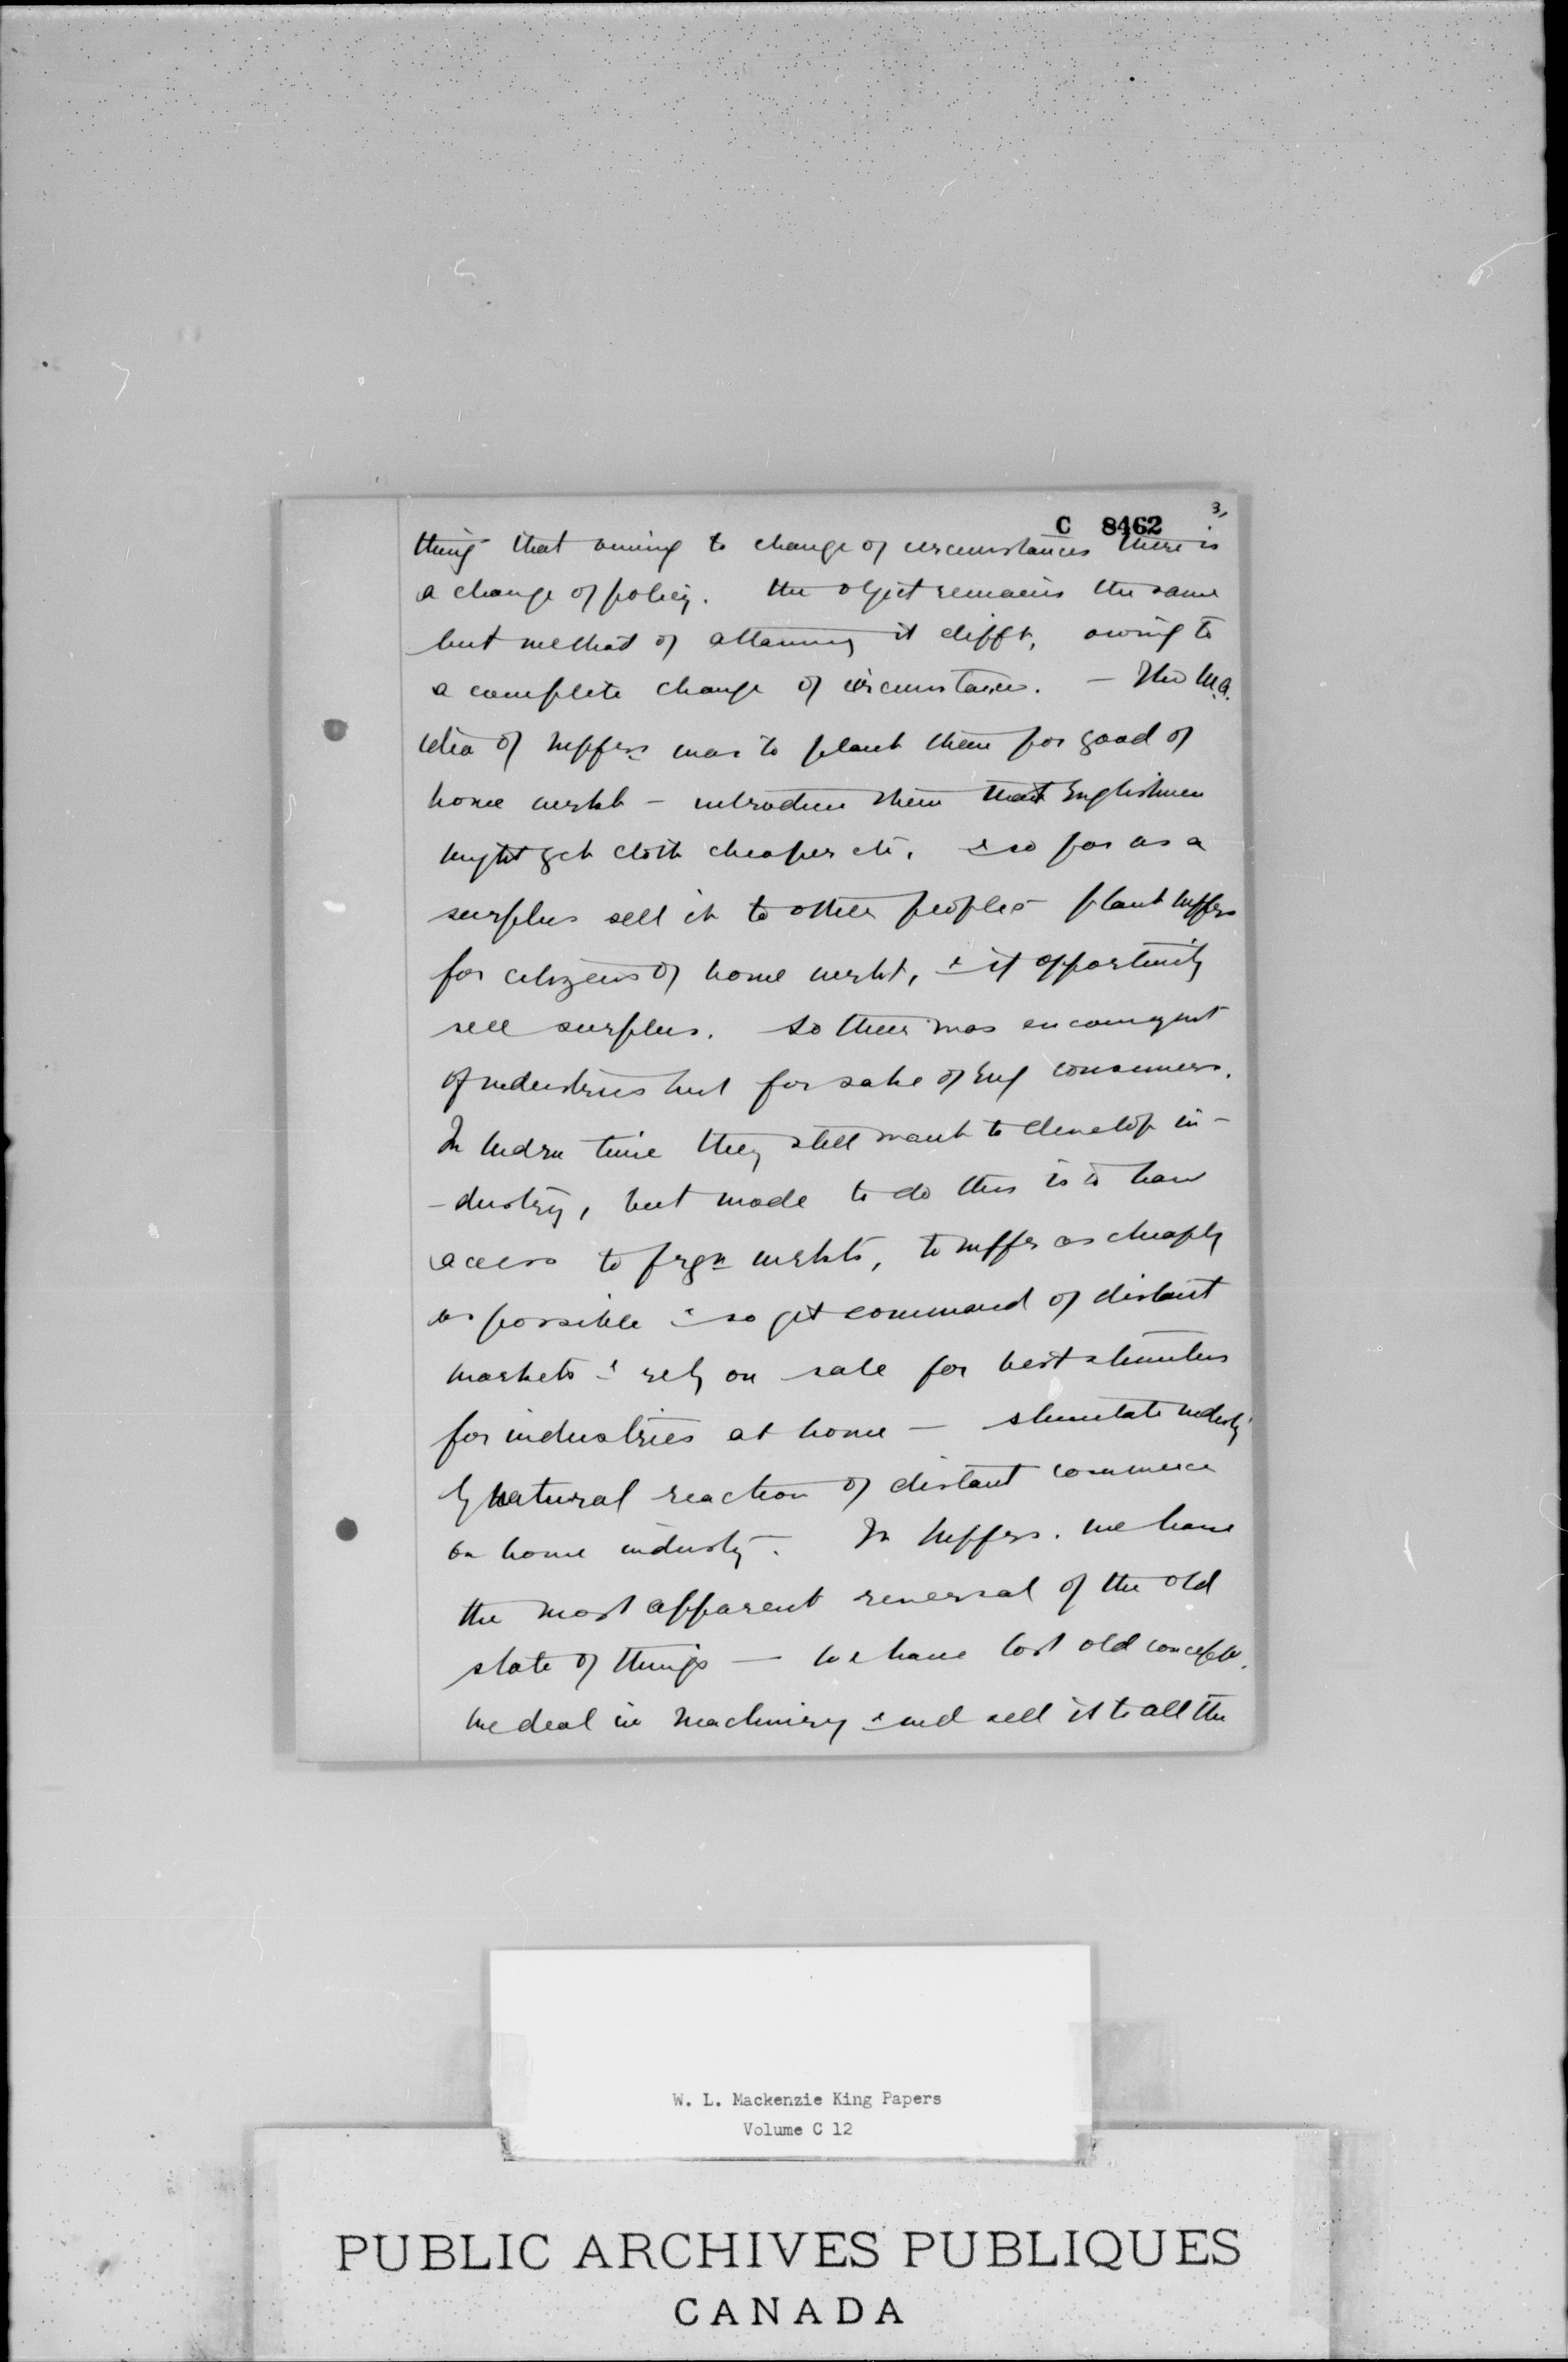 3,
C 8462
thing that owing to change of circumstances there is
a change of policy. The object remains the same
but method of attaining it difft, owing to
a complete change of circumstances. — The M.A.
idea of mffrs was to plant them for good of
home mrkt — introduce them that Englishmen
might get cloth cheaper etc. & so far as a
surplus sell it to other peoples — plant mffrs
for citizens of home mrkt, & if opportunity
sell surplus. So there was encouragmt
of industries but for sake of Eng consumers.
In mdrn time they still want to develop in-
-dustry, but mode to do this is to have
access to frgn mrkts, to mffr as cheaply
as possible & so get command of distant
markets & rely on sale for best stimulus
for industries at home — stimulate industy
by natural reaction of distant commerce
on home industy. In mffrs. we have
the most apparent reversal of the old
state of things — we have lost old concept.
We deal in machinery & sell it to all the
W. L. Mackenzie King Papers
Volume C 12
PUBLIC ARCHIVES PUBLIQUES
CANADA